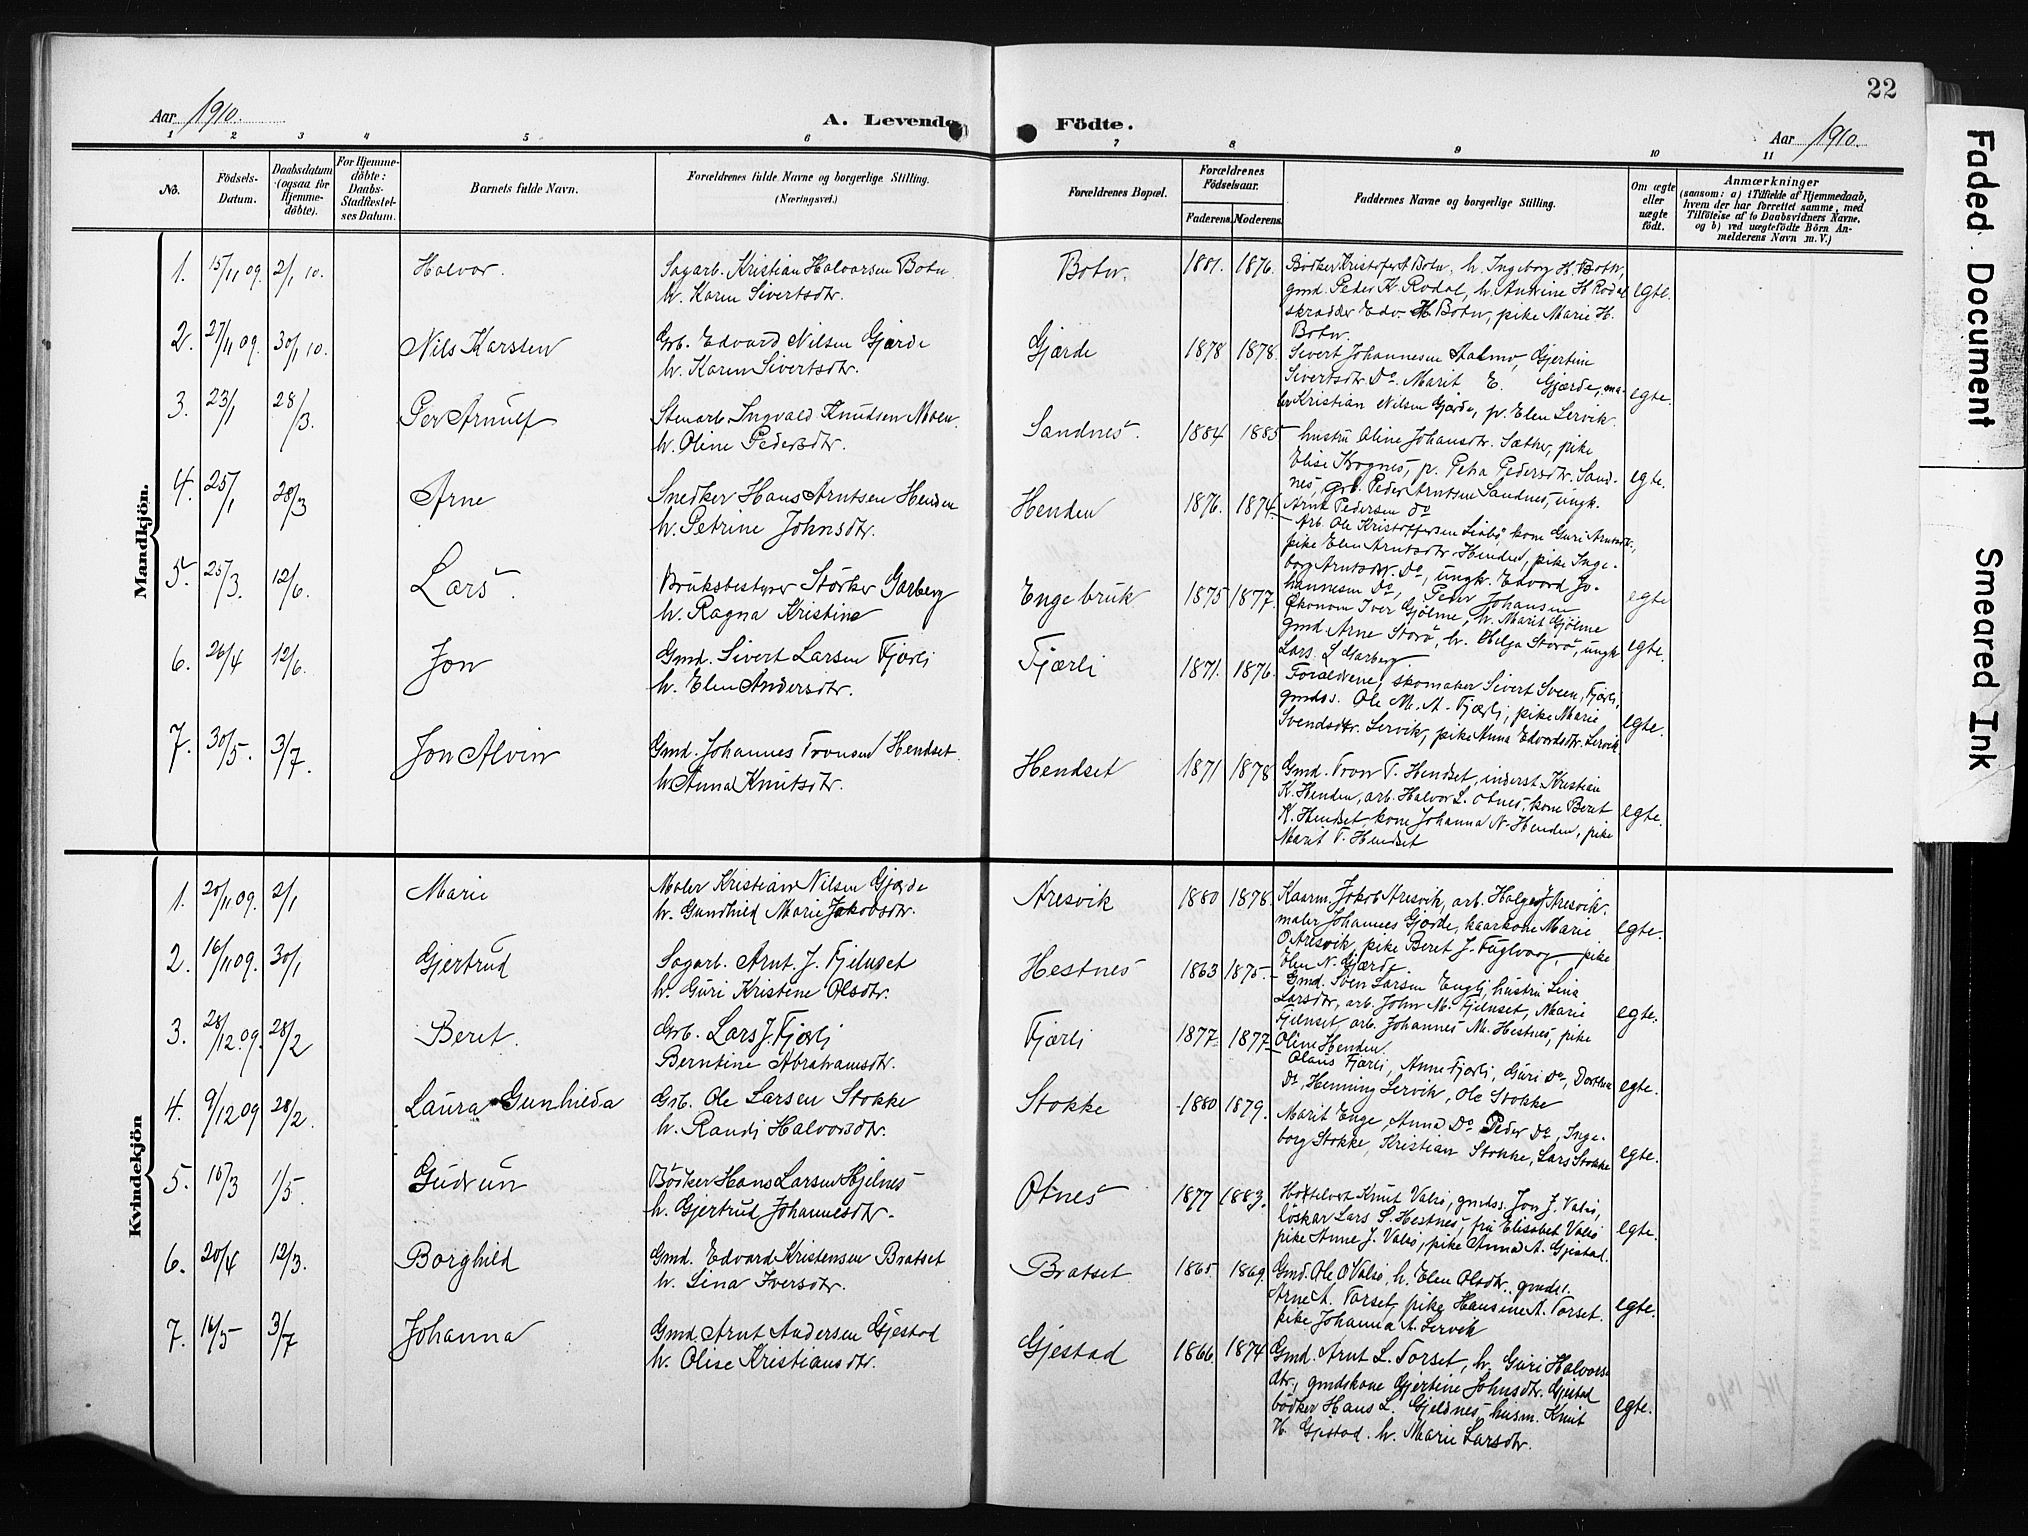 22
Aar 1910.
A. Levende
Födte.
Aar 1910.
1 2 3 4 5 6 7 8 9 10 11
No.
Födsels-
Datum.
Daabsdatum
(ogsaa for
Hjemme-
döbte).
For Hjemme-
döbte:
Daabs-
Stadfæstel-
ses Datum.
Barnets fulde Navn.
Forældrenes fulde Navne og borgerlige Stilling.
(Næringsvei.)
Forældrenes Bopæl.
Forældrenes
Födselsaar.
Faderens. Moderens.
Faddernes Navne og borgerlige Stilling.
Om ægte
eller
uægte
født.
Anmærkninger
(saasom: a) i Tilfælde af Hjemmedaab,
hvem der har forrettet samme, med
Tilföielse af to Daabsvidners Navne,
og b) ved uægtefödte Börn An-
melderens Navn m. V.)
Mandkjön.
1. 15/11 09. 2/1 10. Halvor. Sagarb. Kristian Halvorsen Botn.
h. Karen Sivertsdtr.
Botn. 1881. 1876. Bödker Kristofer A Botn, h. Ingeborg H. Botn,
gmd. Peder K. Rodal, h. Andrine H Rodal
skrædder Edv. H. Botn, pike Marie H.
Botn.
egte.
2. 27/11 09. 30/1 10. Nils Karsten Grb. Edvard Nilsen Gjærde
h. Karen Sivertsdtr.
Gjærde 1878 1878. Sivert Johannesen Aalmo, Gjertine
Sivertsdtr Do. Marit E. Gjærde, ma-
ler Kristian Nilsen Gjærde, p. Elen Lervik.
egte.
3. 23/1 28/3. Per Arnulf Stenarb. Ingvald Knudsen Moen.
h. Oline Pedersdtr.
Sandnes. 1884 1885 hustru Oline Johansdtr. Sæther, pike
Elise Krognes, p. Petra Pedersdtr. Sand-
nes, Grb. Peder Arntsen Sandnes, ungk.
Arnt Pedersen do
egte.
4. 25/1 28/3 Arne Snedker Hans Arntsen Henden
h. Petrine Johnsdtr.
Henden 1876. 1874. Arb. Ole Kristoffersen Liabö, kone Guri Arntsdtr,
pike Elen Arntsdtr Henden, pike Inge-
borg Arntsdtr. Do, ungk. Edvard Jo-
hannesen Do, Peder Johansen
egte
5. 25/3. 12/6. Lars Bruksbestyrer Störker Garberg
h. Ragna Kristine
Enge bruk 1875 1877. Ökonom Iver Gjölme, h. Marit Gjölme
gmd Arne Storö, h. Helga Storö, ungk
Lars L Garberg
egte.
6. 26/4 12/6. Jon Gmd. Sivert Larsen Fjærli
h. Elen Andersdtr.
Fjærli 1871. 1876. Forældrene, skomaker Sivert Sveen, Fjærli,
gmdss. Ole M. A. Fjærli, pike Marie
Svendsdtr Lervik, pike Anna Edvardsdtr. Lervik
egte.
7. 30/5. 3/7. Jon Alvin Gmd. Johannes Tronsen Hendset.
h. Anna Knutsdtr.
Hendset 1871 1878 Gmd. Tron T. Hendset, inderst Kristian
K. Henden, arb. Halvor L. Otnes, kone Beret
K. Hendset, kone Johanna N. Henden, pike
Marit T. Hendset
egte.
Kvindekjön
1. 20/11 09. 2/1 Marie Maler Kristian Nilsen Gjærde
h. Gunhild Marie Jakobsdtr.
Aresvik 1880 1878. Kaarm. Jakob Aresvik, arb. Holger J Aresvik.
maler Johannes Gjærde, kaarkone Marie
O Aresvik, pike Beret J. Fuglvaag, pike
Elen N. Gjærde
egte.
2. 16/11 09. 30/1 Gjertrud Sagarb. Arnt. J. Fjelnset
h. Guri Kristine Olsdtr.
Hestnes 1863 1875. Gmd. Sven Larsen Engli, hustru Lina
Larsdtr, arb. John M. Fjelnset, Marie
Fjelnset, arb. Johannes M. Hestnes, pike
Oline Henden.
egte.
3. 28/12 09. 28/2 Beret. Grb. Lars J. Fjærli
Berntine Abrahamsdtr.
Fjærli 1877 1877 Olaus Fjærli, Anne Fjærli, Guri Do, Dorthea
Do, Henning Lervik, Ole Stokke
egte.
4. 9/12 09 28/2. Laura Gunhilda Grb. Ole Larsen Stokke
h. Randi Halvorsdtr.
Stokke 1880 1879. Marit Enge, Anna Do Peder Do, Inge-
borg Stokke, Kristian Stokke, Lars Stokke
egte.
5. 16/3 1/5. Gudrun Bödker Hans Larsen Hjelnes
h. Gjertrud Johannesdtr.
Otnes 1877 1883. Hotelvert Knut Valsö, gmdss. Jon J. Valsö,
löskar Lars S. Hestnes, fru Elisabet Valsö
pike Anne J. Valsö, pike Anna A. Gjestad.
egte.
6. 20/4 12/3. Borghild Gmd. Edvard Kristensen Bratset
h. Lina Iversdtr.
Bratset 1865 1869. Gmd. Ole O Valsö, h. Elen Olsdtr. gmdss.
Arne A. Torset, pike Hansine A. Torset.
pike Johanna A. Lervik
egte.
7. 16/5 3/7 Johanna Gmd. Arnt Andersen Gjestad
h. Olise Kristiansdtr.
Gjestad 1866. 1874 Gmd. Arnt L. Torset, h. Guri Halvors-
dtr, gmdskone Gjertine Johnsdtr. Gjestad
bödker Hans L. Gjeldnes, husm. Knut
H. Gjestad. h. Marie Larsdtr.
egte.
Faded Document
Smeared Ink